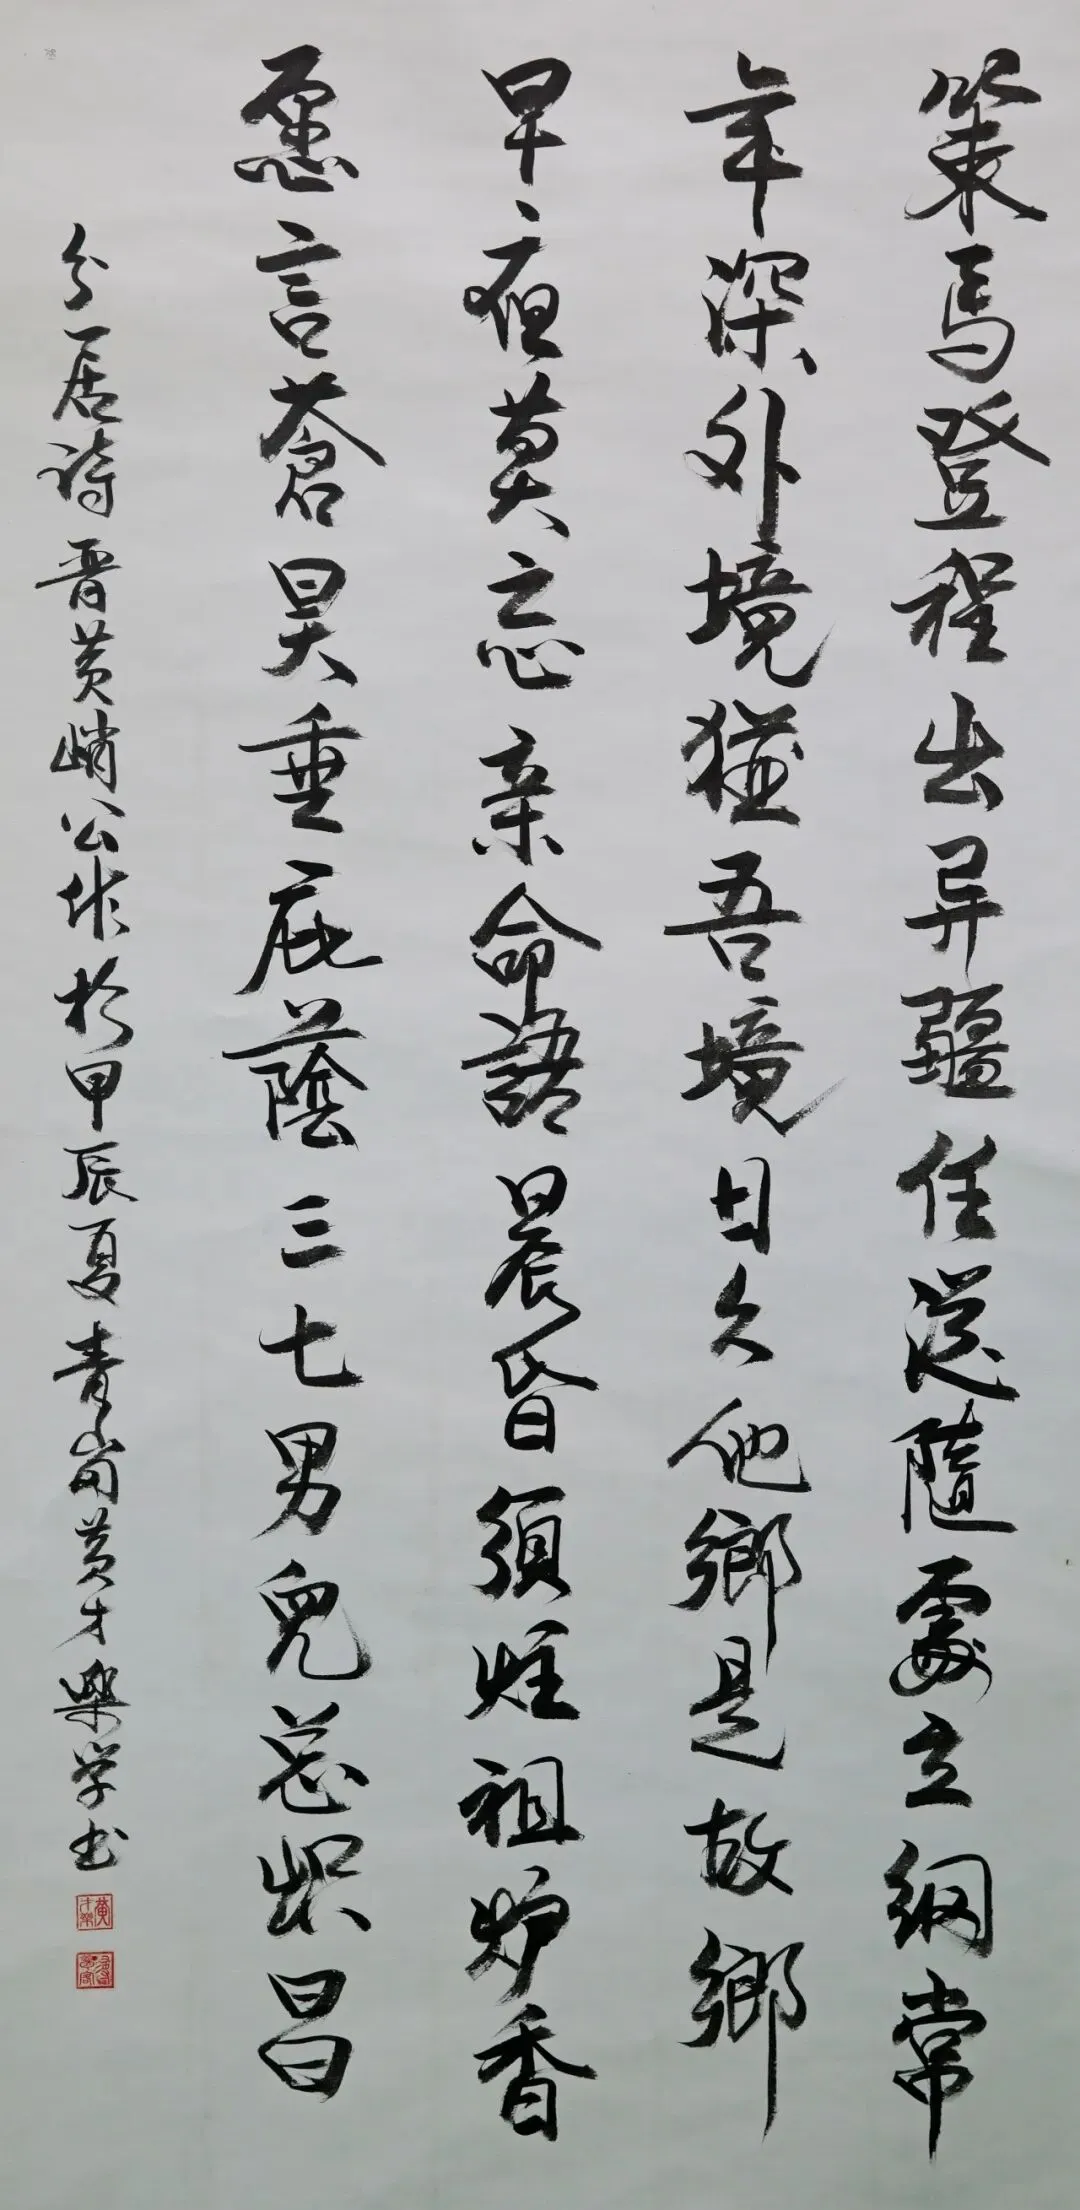 策馬登程出异疆任從隨處立綱常
年深外境猶吾境日久他鄉是故鄉
早夜莫忘亲命語晨昏須炷祖炉香
愿言蒼昊垂庇蔭三七男兒总炽昌
分居詩晋黄峭公作於甲辰夏青崗黄才樂学书
黄才樂